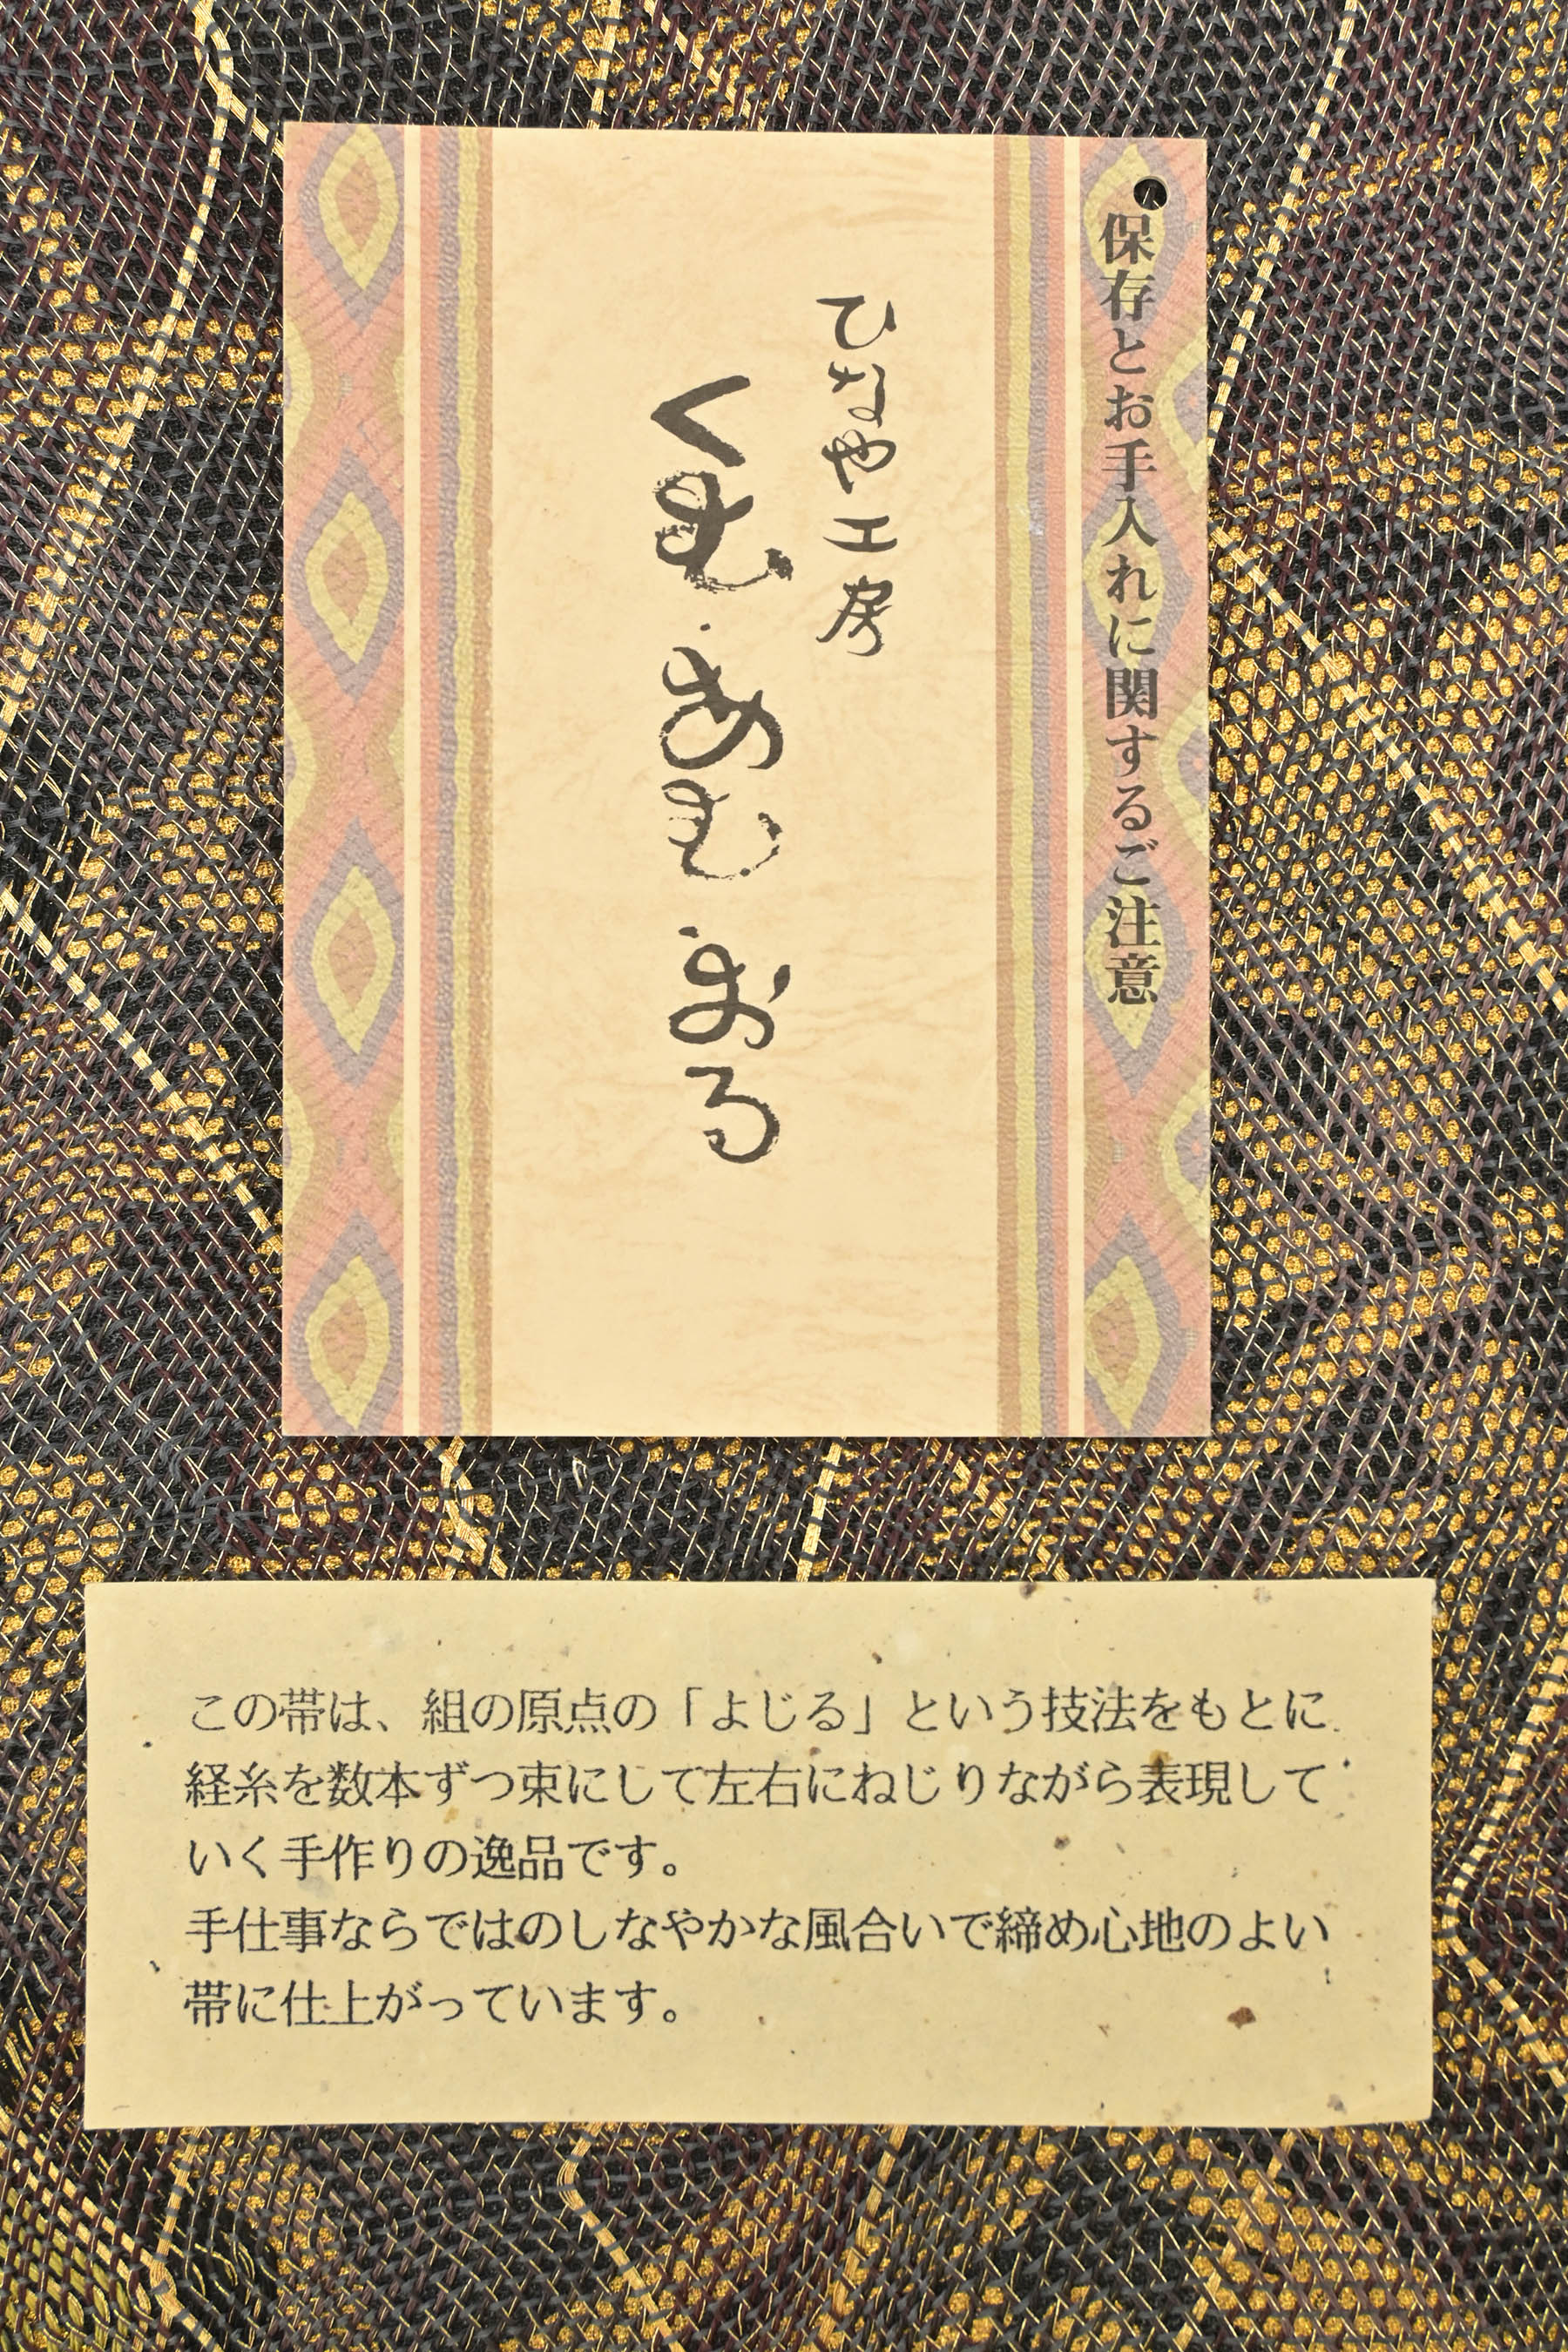 保存とお手入れに関するご注意
ひなや工房
くむ・あむ・おる
この帯は、組の原点の「よじる」という技法をもとに
経糸を数本ずつ束にして左右にねじりながら表現して
いく手作りの逸品です。
手仕事ならではのしなやかな風合いで締め心地のよい
帯に仕上がっています。